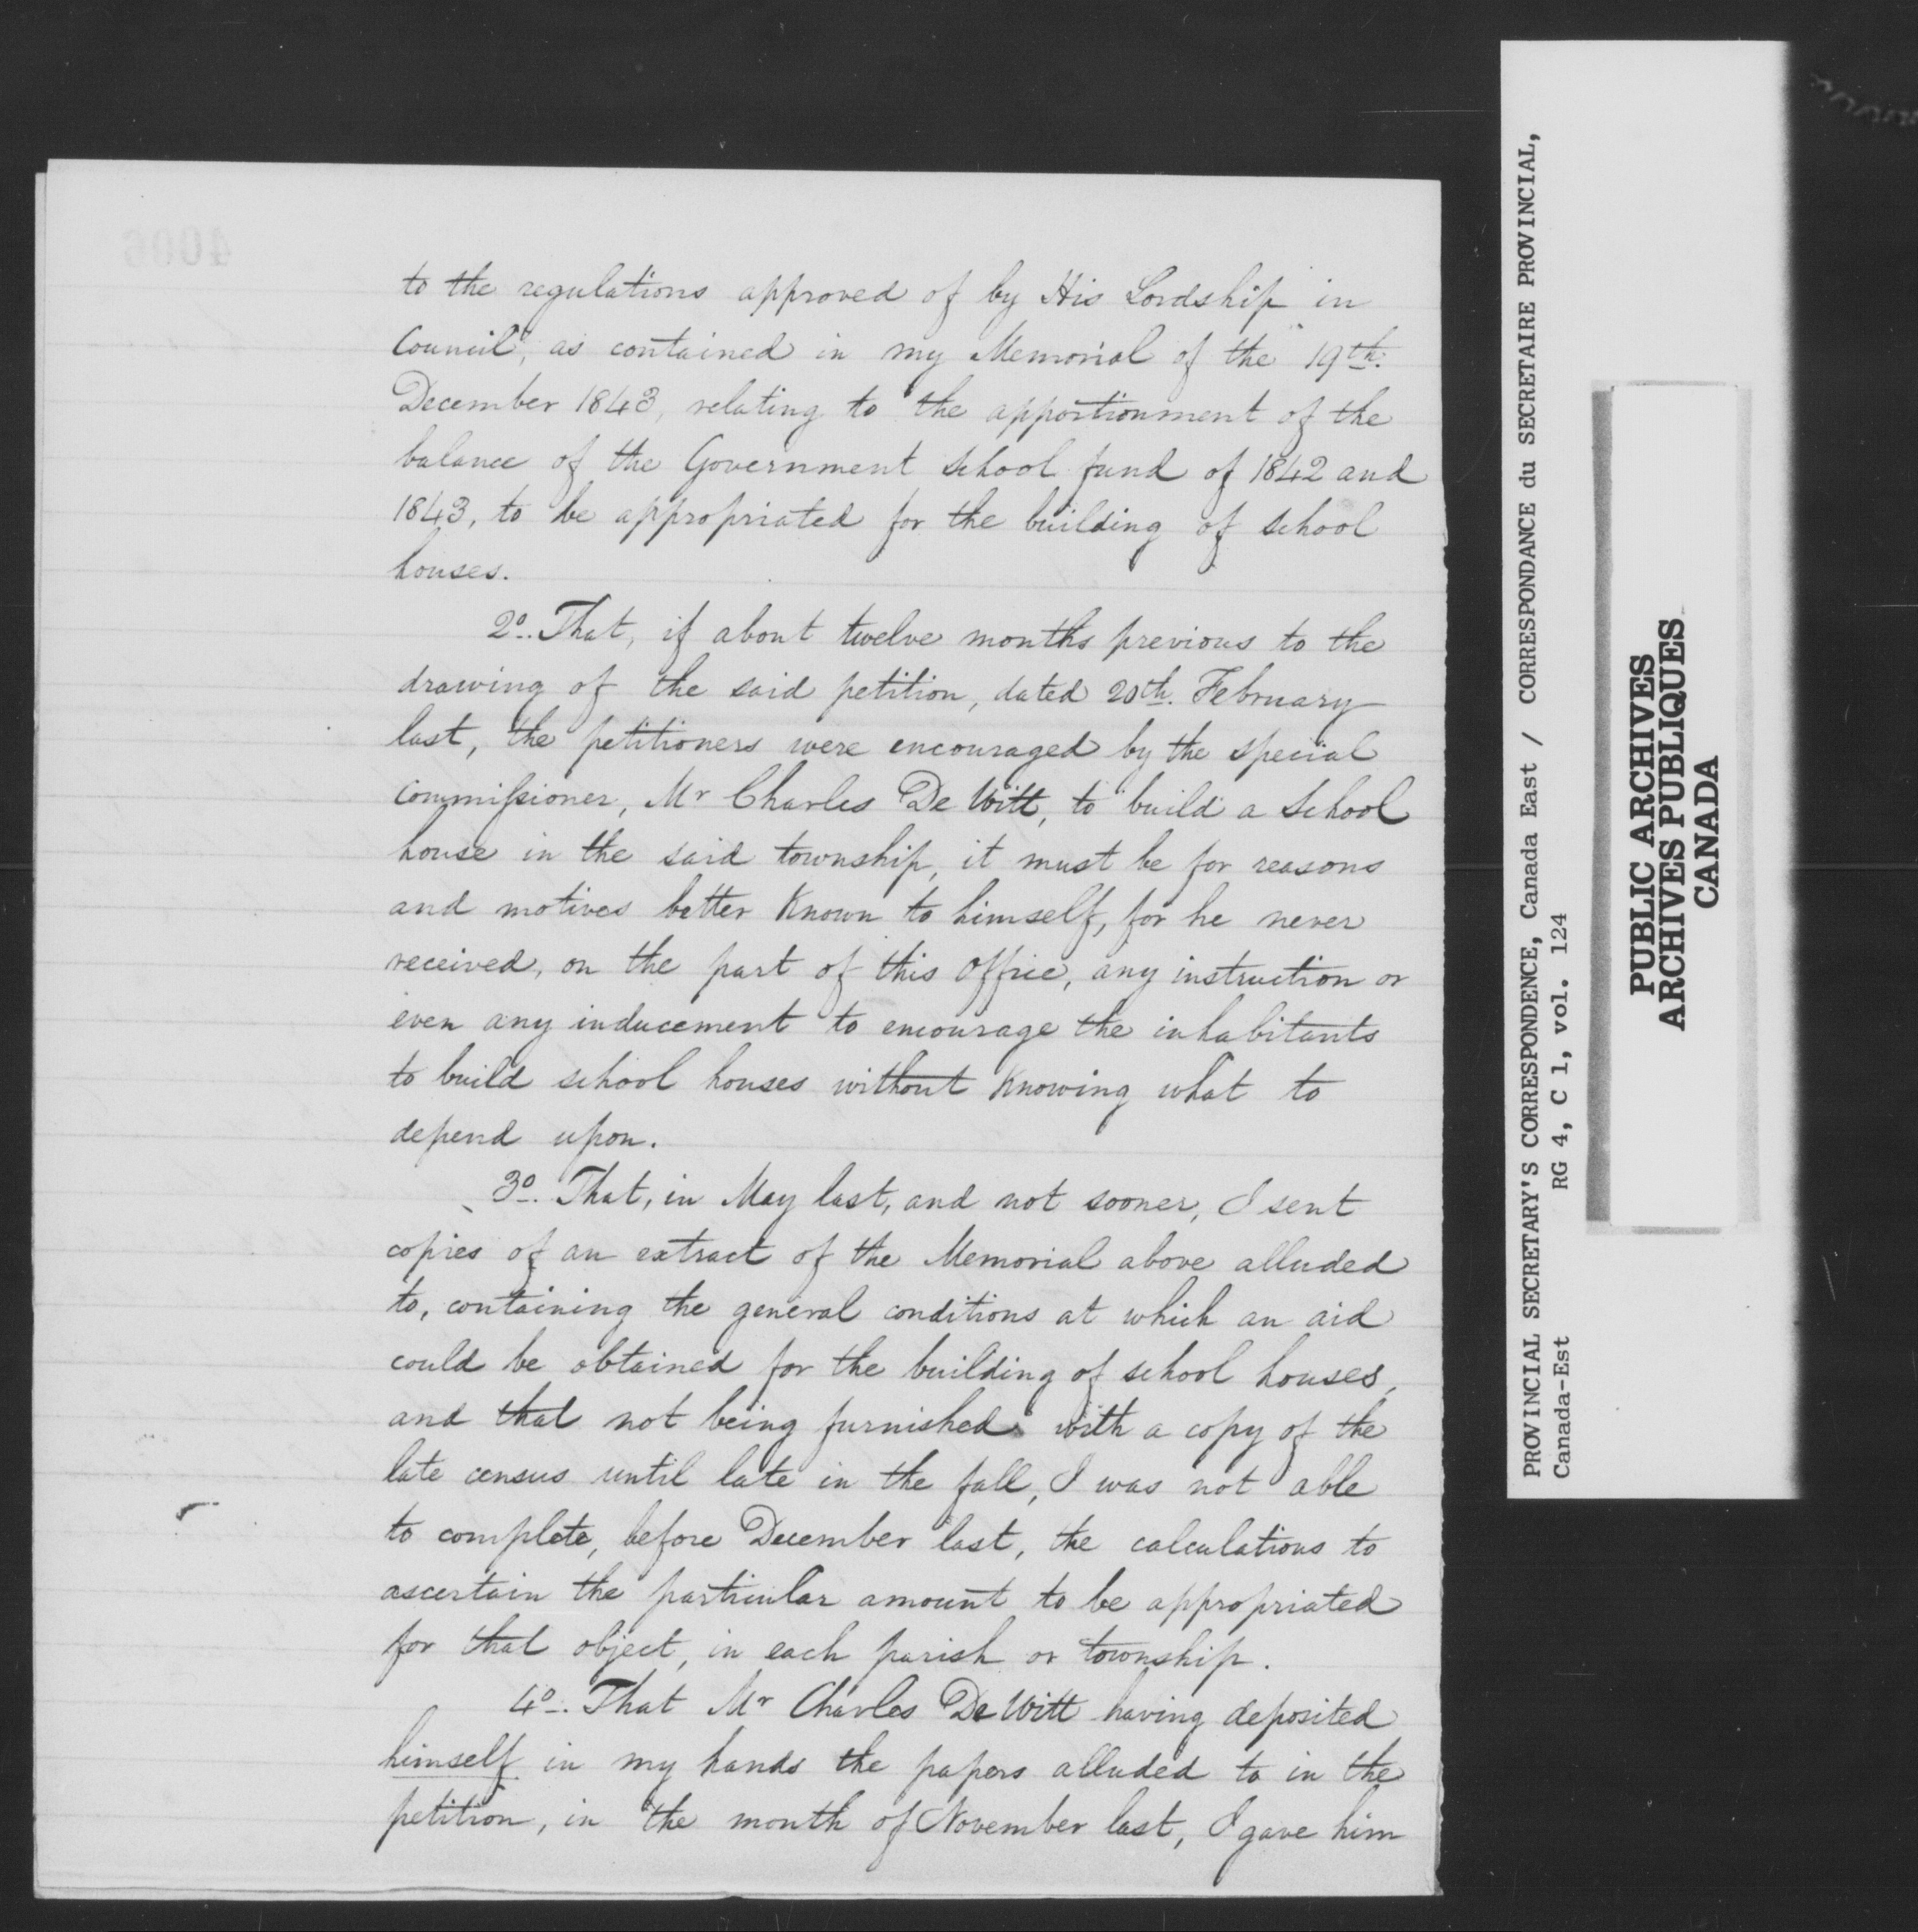 to the regulations approved of by His Lordship in
Council", as contained in my Memorial of the 19th.
December 1843, relating to the apportionment of the
balance of the Government School fund of 1842 and
1843, to be appropriated for the building of school
houses.
2o. That, if about twelve months previous to the
drawing of the said petition, dated 20th. February
last, the petitioners were encouraged by the special
commissioner, Mr Charles De Witt, to "build" a School
house in the said township, it must be for reasons
and motives better Known to himself, for he never
received, on the part of this Office, any instruction or
even any inducement to encourage the inhabitants
to build school houses without Knowing what to
depend upon.
3o. That, in May last, and not sooner, I sent
copies of an extract of the Memorial above alluded
to, containing the general conditions at which an aid
could be obtained for the building of school houses,
and that not being furnished with a copy of the
late census until late in the fall, I was not able
to complete, before December last, the calculations to
ascertain the particular amount to be appropriated
for that object, in each parish or township.
4o. That Mr Charles De Witt having deposited
himself in my hands the papers alluded to in the
petition, in the month of November last, I gave him
4006
PROVINCIAL SECRETARY'S CORRESPONDENCE, Canada East / CORRESPONDANCE du SECRETAIRE PROVINCIAL,
Canada-Est RG 4, C 1, vol. 124
PUBLIC ARCHIVES
ARCHIVES PUBLIQUES
CANADA